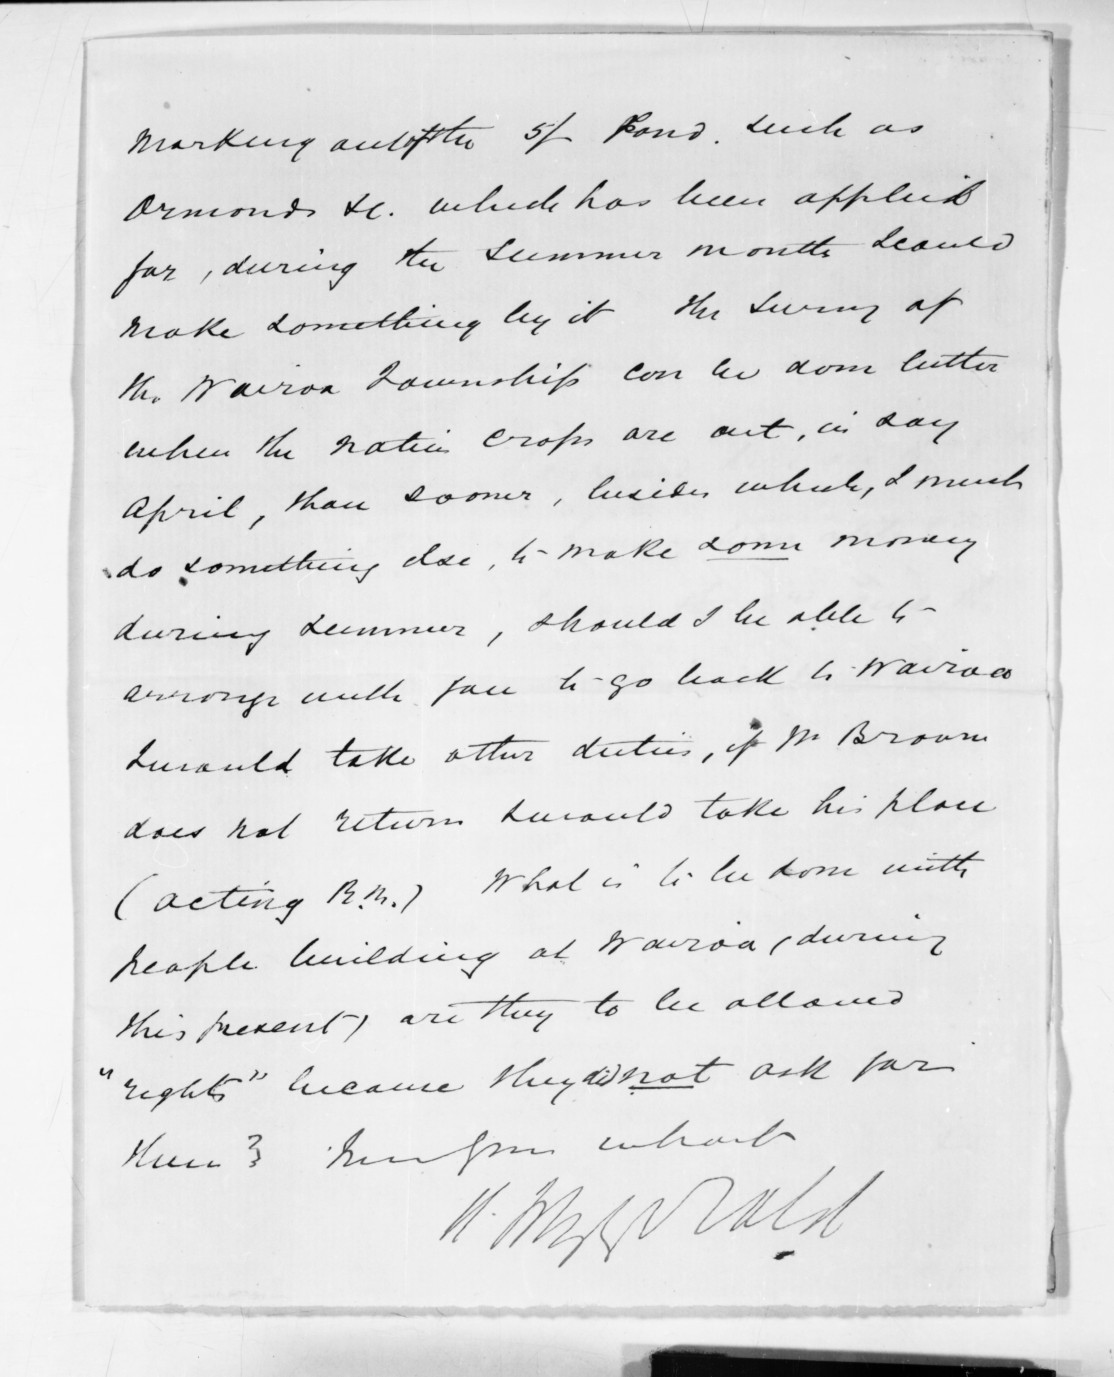 marking out of the 5/ Land. such as
Ormonds &c. which has been applied
for, during the summer months & could
make something by it the survey of
the Wairoa Township can be done better
when the native crops are out, in say
April, than sooner, besides which, I must
do something else, to make some money
during summer, should I be able to
arrange with you to go back to Wairoa
I would take other duties, if Mr Brown
does not return I would take his place
(acting R.M.) What is to be done with
people building at Wairoa (during
this present) are they to be allowed
"rights" because they did not ask for
them?